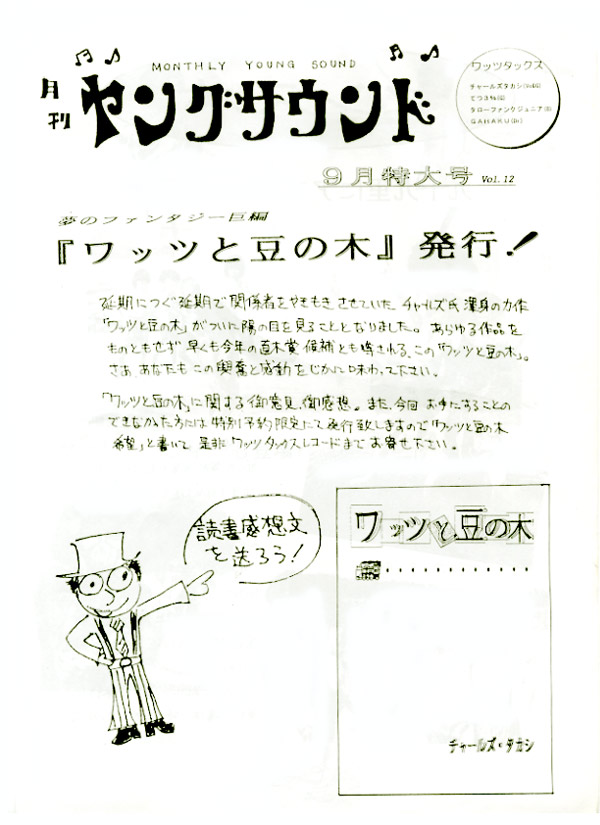 MONTHLY YOUNG SOUND
月刊
ヤングサウンド
ワッツタックス
チャールズタカシ(Vo&G)
てつさ%(G)
タローファンクジュニア(B)
GAHAKU(Dr)
9月特大号 Vol. 12
夢のファンタジー巨編
『ワッツと豆の木』発行!
延期につぐ延期で関係者をやきもきさせていたチャールズ氏渾身の力作
「ワッツと豆の木」がついに陽の目を見ることとなりました。あらゆる作品を
ものともせず早くも今年の直木賞候補とも噂される、この「ワッツと豆の木」。
さあ、あなたもこの興奮と感動をじかに味わって下さい。
「ワッツと豆の木」に関する御意見、御感想。また、今回お手にすることの
できなかった方には特別予約限定にて発行致しますので「ワッツと豆の木
希望」と書いて是非ワッツタックスレコードまでお寄せ下さい。
読書感想文
を送ろう!
ワッツと豆の木
チャールズ・タカシ